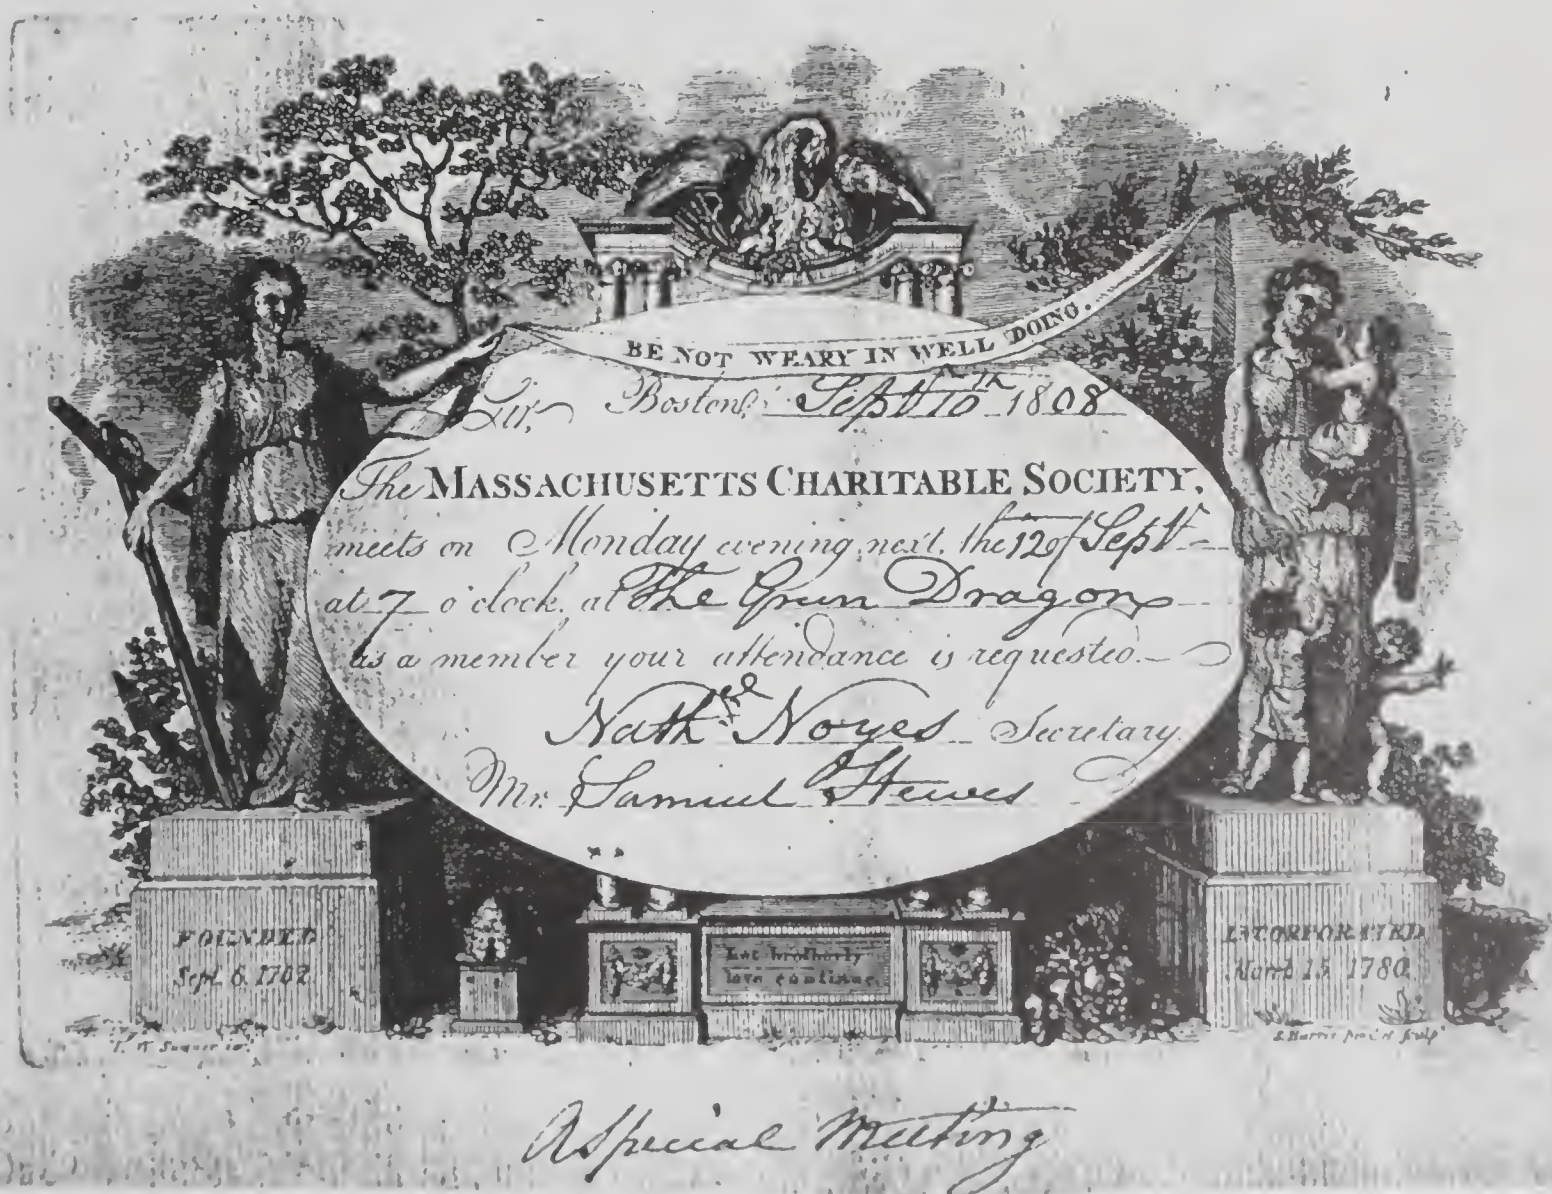 BE NOT WEARY IN WELL DOING.
Sir, Boston, Sept 10th 1808
The MASSACHUSETTS CHARITABLE SOCIETY,
meets on Monday evening next, the 12 of Sept
at 7 o'clock, at The Green Dragon
as a member your attendance is requested.
Nathel Noyes Secretary.
Mr. Samuel Hewes
FOUNDED
Sept. 6. 1762
Let brotherly
love continue
INCORPORATED
March 15, 1780
T. W. Sumner
S. Harris Sculp
A Special Meeting